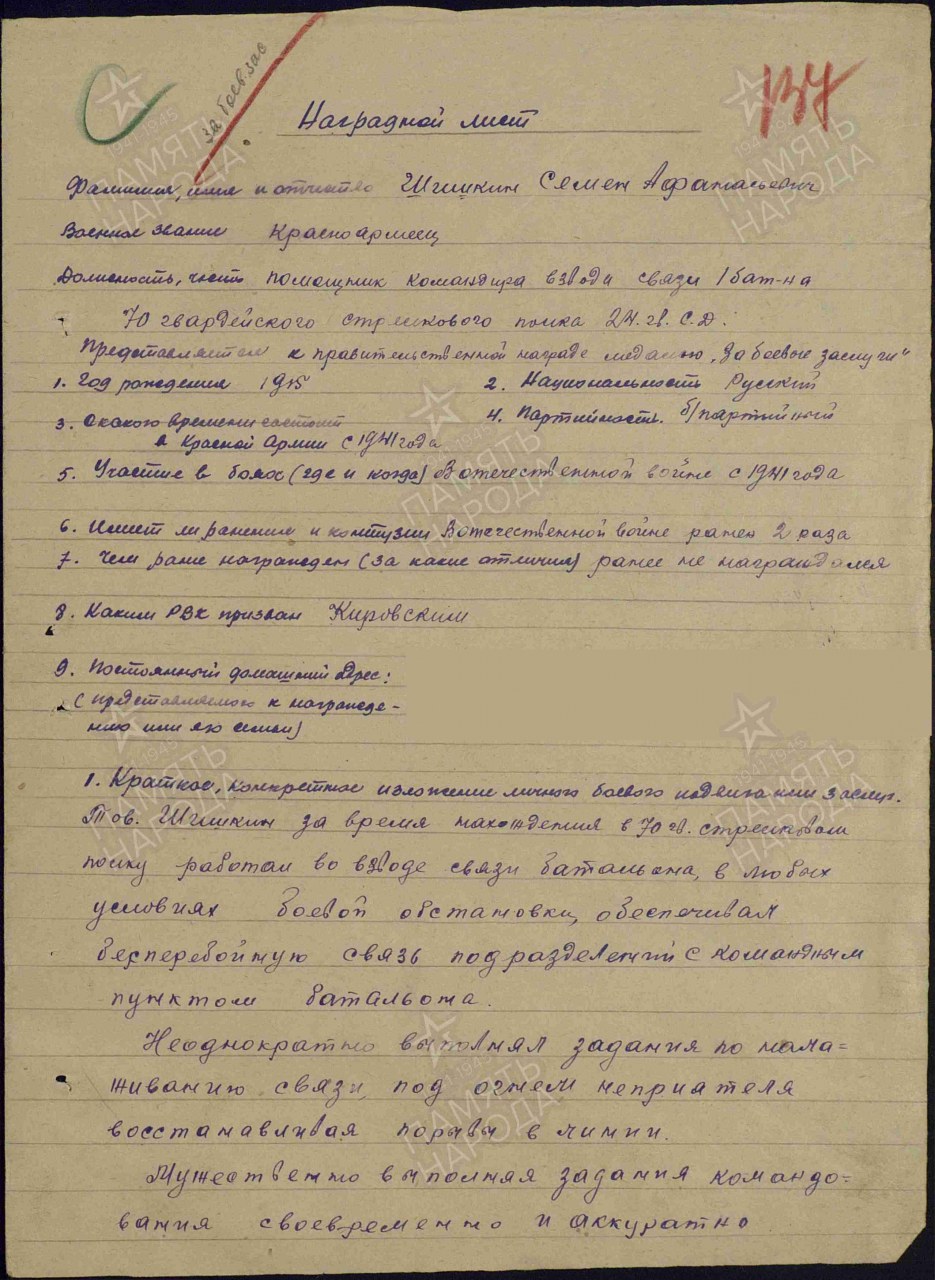 за боев. зас
137
Наградной лист
Фамилия, имя и отчество Шишкин Семен Афанасьевич
Военное звание Красноармеец
Должность, часть помощник командира взвода связи 1 бат-на
70 гвардейского стрелкового полка 24. гв. С.Д.
Представляется к правительственной награде медалью „За боевые заслуги"
1. Год рождения 1915
2. Национальность Русский
3. С какого времени состоит
в Красной Армии с 1941 года
4. Партийность. б/партийный
5. Участие в боях (где и когда) В отечественной войне с 1941 года
6. Имеет ли ранения и контузии В отечественной войне ранен 2 раза
7. Чем ранее награжден (за какие отличия) ранее не награждался
8. Каким РВК призван Кировским
9. Постоянный домашний адрес:
(представляемого к награжде-
нию или его семьи)
1. Краткое, конкретное изложение личного боевого подвига или заслуг.
Тов. Шишкин за время нахождения в 70 гв. стрелковом
полку работал во взводе связи батальона, в любых
условиях боевой обстановки, обеспечивал
бесперебойную связь подразделений с командным
пунктом батальона.
Неоднократно выполнял задания по нала=
живанию связи, под огнем неприятеля
восстанавливая порывы в линии.
Мужественно выполняя задания командо=
вания своевременно и аккуратно
ПАМЯТЬ
НАРОДА
1941-1945